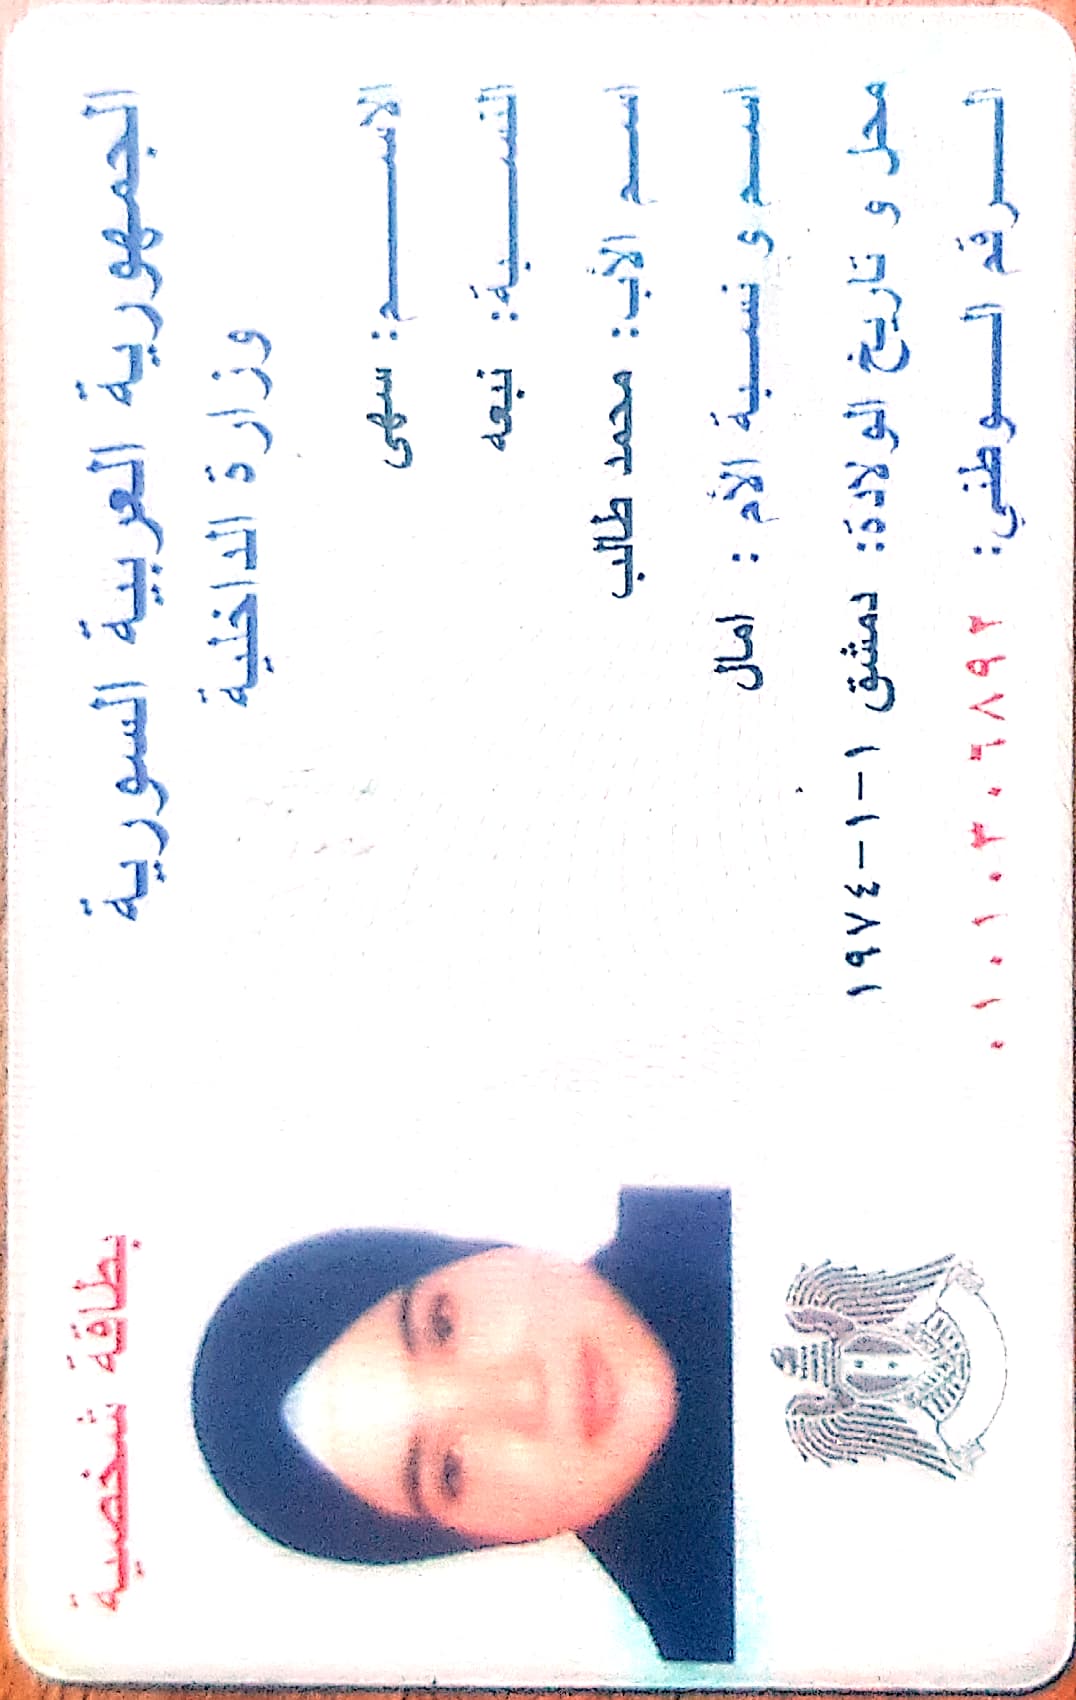 الجمهورية العربية السورية
بطاقة شخصية
وزارة الداخلية
الاسم: سهى
النسبة: نبعه
اسم الأب: محمد طالب
اسم و نسبة الأم : امال
محل و تاريخ الولادة: دمشق ١-١-١٩٧٤
الرقم الوطني: ٠١٠١٠٣٠٦٨٩٢